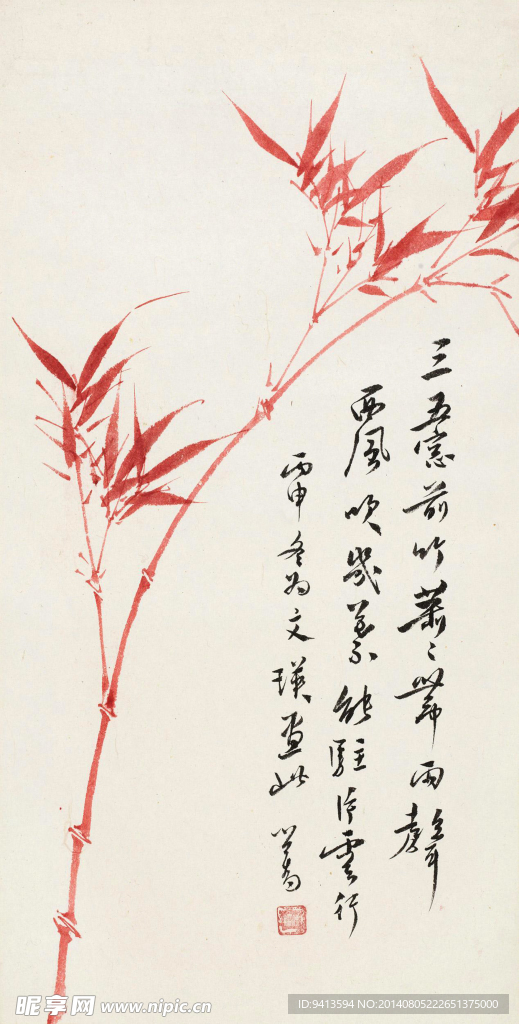 三五窓前竹蕭〻帶雨聲
西風吹幾葉能駐片雲行
丙申冬為文瑛畫此 心畬
昵享网 www.nipic.cn
ID:9413594 NO:20140805222651375000